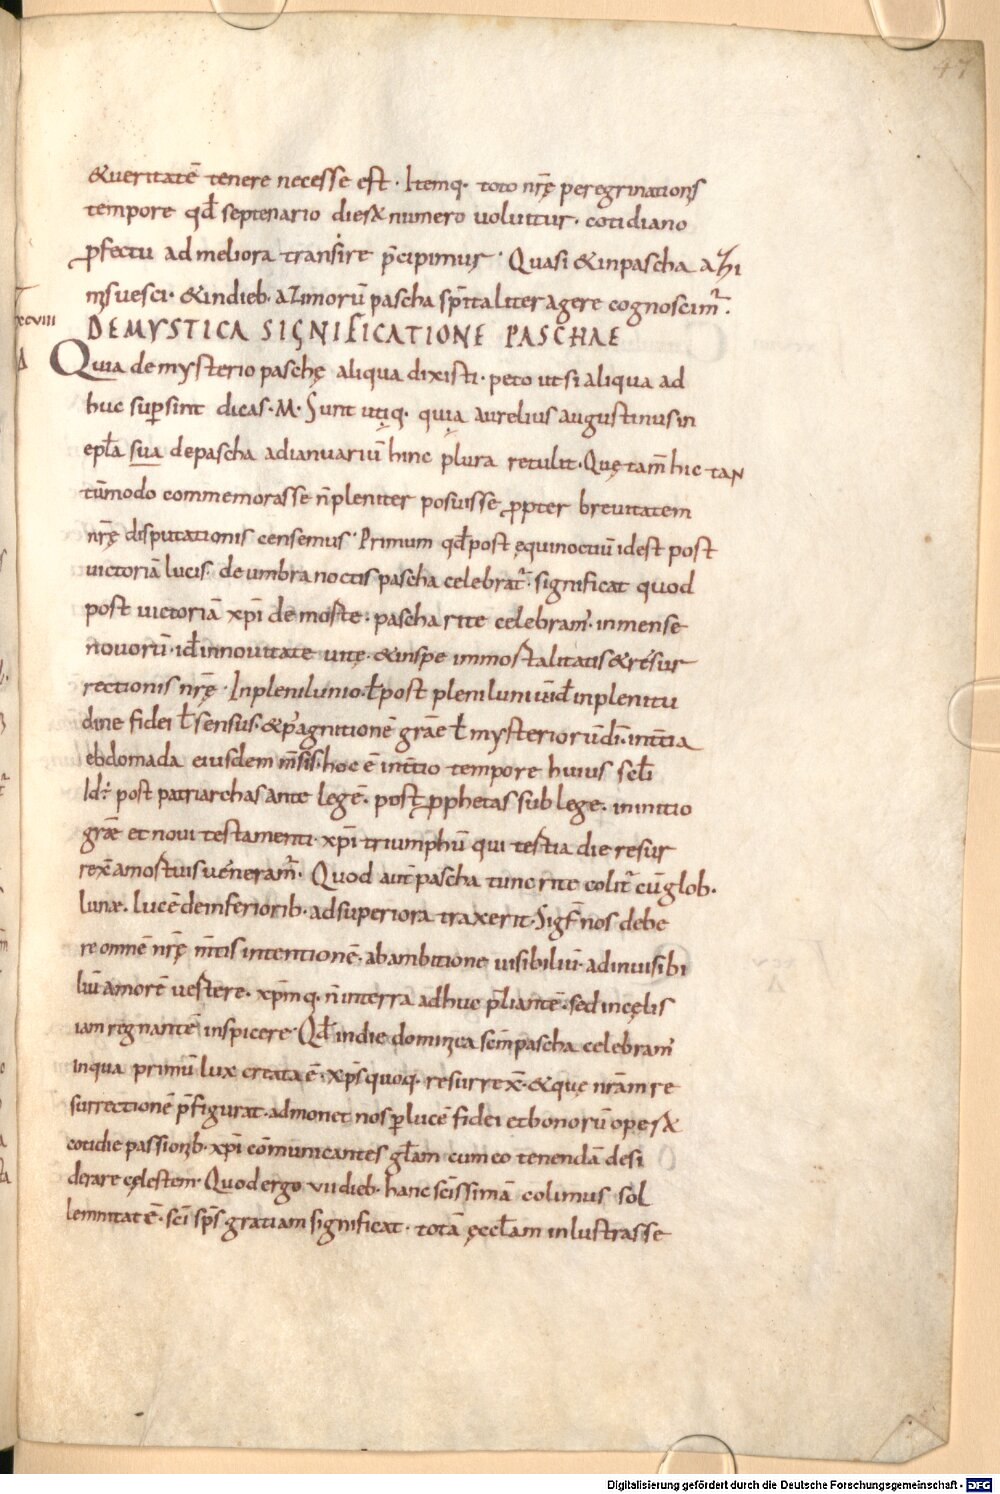 47
&veritatē tenere necesse est · Itemq· toto nr̄ę peregrinationis
tempore qd̄ septenario dier& numero voluitur · cotidiano
ꝓfectu ad meliora transire p̄cipimur · Quasi &inpascha azi
mis vesci · &indieb· azimorū pascha sp̄italiter agere cognoscim̄r·
xcviii DEMYSTICA SIGNIFICATIONE PASCHAE
Δ Quia demysterio paschę aliqua dixisti · peto utsi aliqua ad
huc suꝑsint dicas · M · Sunt utiq· quia aurelius augustinus in
epl̄a sua depascha adianuariū hinc plura retulit · Quę tam̄ hic tan
tūmodo commemorasse n̄ pleniter posuisse ꝓpter brevitatem
nr̄ę disputationis censemus · Primum qd̄ post ęquinoctiū idest post
victoriā lucis · deumbra noctis pascha celebrat̄r · significat quod
post victoriā xp̄i de morte · pascha rite celebram̄ · inmense
novorū · id̄ innovitate vitę · &inspe immortalitatis &resur
rectionis nr̄ę · Inplenilunio · ł post plenilunium id̄ inplenitu
dine fidei ł sensus · &ꝑagnitionē grāe ł mysteriorū dī · intt̄ia
ebdomada eiusdem m̄sis · hoc ē intt̄io tempore huius scl̄i
Id: post patriarchas ante legē · post ꝓphetas sub lege · in initio
grāe et novi testamenti · xp̄i triumphū qui tertia die resur
rex̄ amortuis veneram̄r · Quod aut̄ pascha tunc rite colit̄r cū glob·
lunae · lucē deinferiorib· adsuperiora traxerit · Sigf̄ nos debe
re omnē nr̄ę m̄tis intentionē · abambitione visibiliū · adinvisibi
liū amorē vertere · xp̄mq· n̄ interra adhuc p̄liantē · sed incęlis
iam regnantē inspicere · Qd̄ indie dominica sem̄ pascha celebram̄
inqua primū lux creata ē · xp̄s quoq· resurrex̄ · &quę nrām re
surrectionē p̄figurat · admonet nos ꝑ lucē fidei et bonorū oper&
cotidie passionib· xp̄i cōmunicantes gl̄am cum eo tenendā desi
derare cęlestem · Quod ergo vii dieb· hanc sc̄issimā colimus sol
lemnitatē · sc̄i sp̄s gratiam significat · totā ęccl̄am inlustrasse
Digitalisierung gefördert durch die Deutsche Forschungsgemeinschaft - DFG